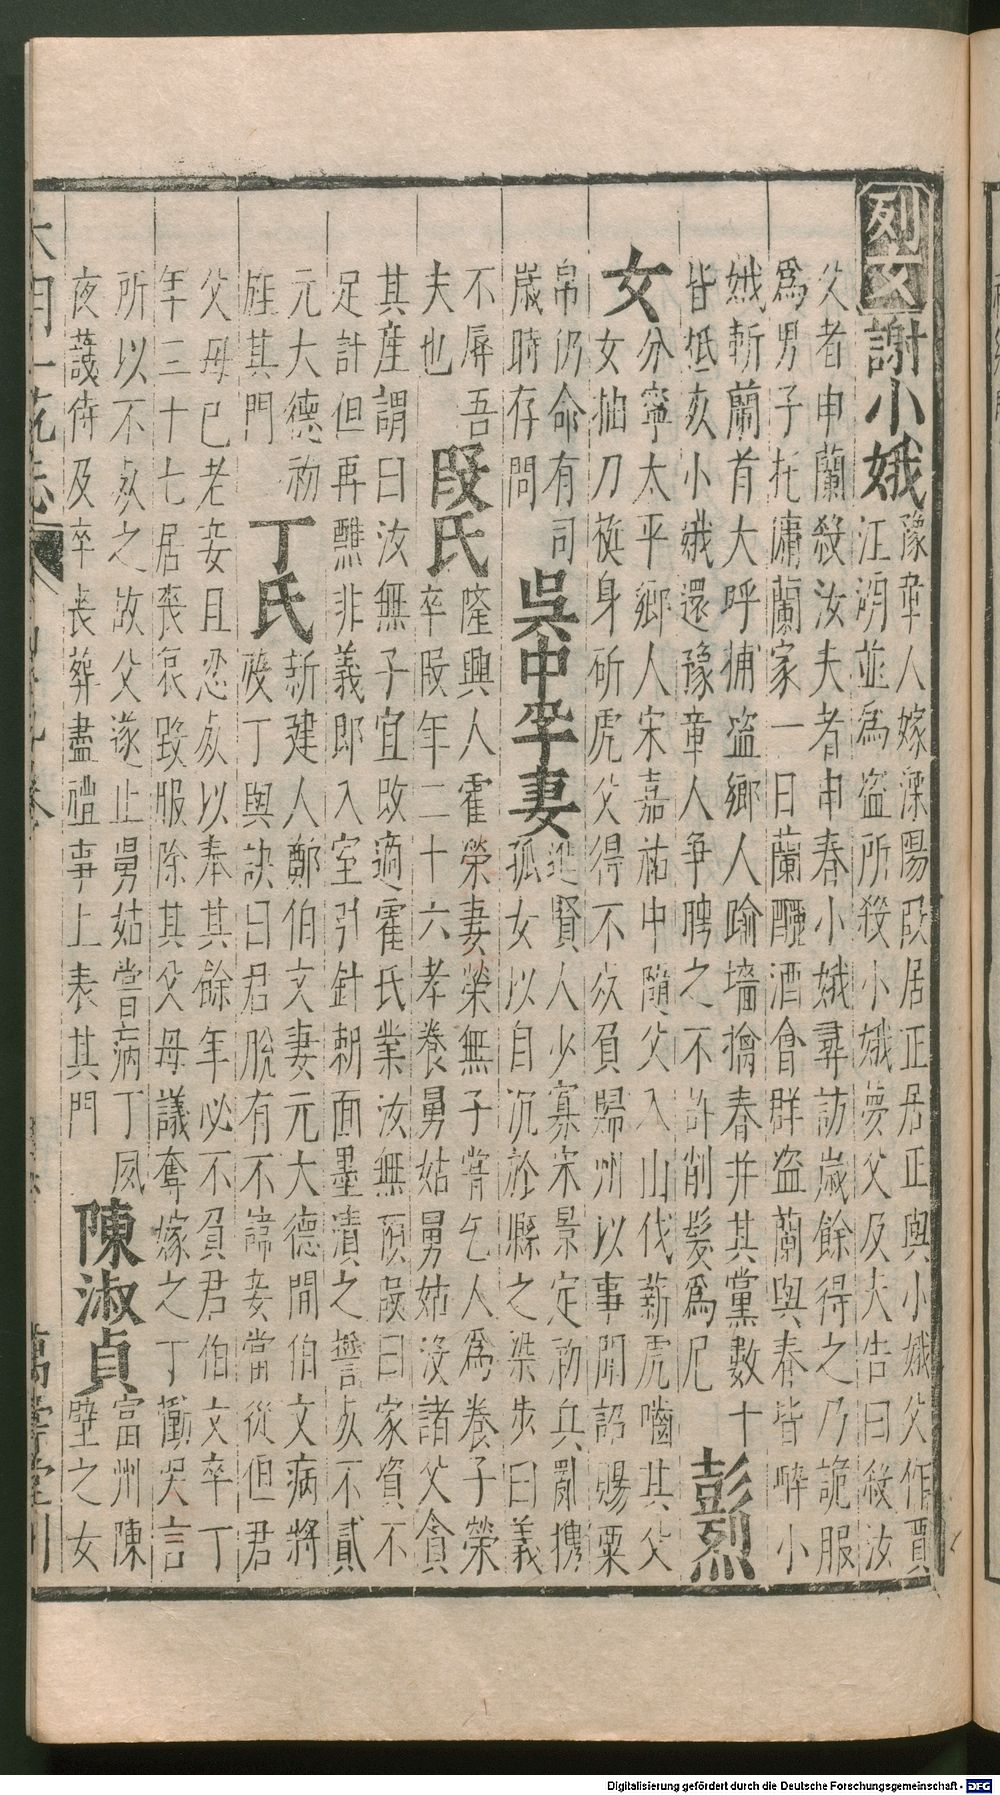 列女謝小娥
豫章人嫁溧陽叚居正居正與小娥父作賈
江湖並爲盗所殺小娥夢父及夫告曰殺汝
父者申蘭殺汝夫者申春小娥尋訪歲餘得之乃詭服
爲男子托傭蘭家一日蘭醺酒會群盗蘭與春皆醉小
娥斬蘭首大呼捕盗鄉人踰墻擒春并其黨數十
皆抵死小娥還豫章人争聘之不許削髮爲尼
彭烈
女
分寧太平鄉人宋嘉祐中隨父入山伐薪虎嚙其父
女抽刀挺身斫虎父得不死負歸州以事聞詔賜粟
帛仍命有司
歲時存問
吳中孚妻
進賢人少寡宋景定初兵亂携
孤女以自沉於縣之染步曰義
不辱吾
夫也
段氏
隆興人霍榮妻榮無子嘗乞人爲養子榮
卒叚年二十六孝養舅姑舅姑没諸父貪
其產謂曰汝無子宜改適霍氏業汝無預叚曰家資不
足計但再醮非義即入室引針刺面墨漬之誓死不貳
元大德初
旌其門
丁氏
新建人鄭伯文妻元大德間伯文病將
歿丁與訣曰君脫有不諱妾當從但君
父母已老妾且忍死以奉其餘年必不負君伯文卒丁
年三十七居喪哀毀服除其父母議奪嫁之丁慟哭言
所以不死之故父遂止舅姑嘗病丁夙
夜護侍及卒喪葬盡禮事上表其門
陳淑貞
富州陳
璧之女
大明一統志
萬壽堂刊
Digitalisierung gefördert durch die Deutsche Forschungsgemeinschaft - DFG